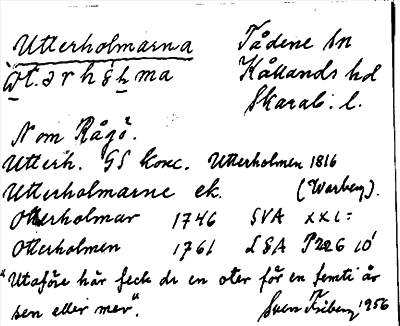 Utterholmarna Tådene sn
Kållands hd
Skarab. l.
N om Rågö.
Utterh. GS konc. Utterholmen 1816
Utterholmarne ek. (Warberg).
Otterholmar 1746 SVA
Otterholmen 1761 LSA P226 10¹
"Utaföre här feck de en oter för en femti år
sen eller mer". Sven Friberg 1956